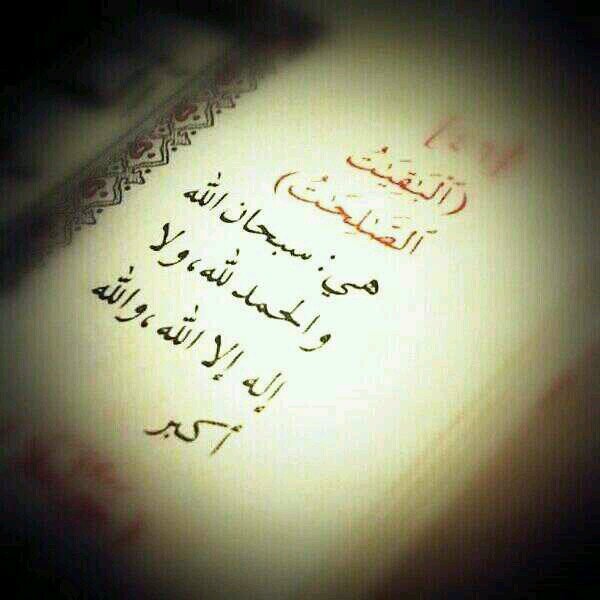 (اَلْبَٰقِيَٰتُ
اَلصَّٰلِحَٰتُ)
هي: سبحان الله
والحمد لله، ولا
إله إلا الله، والله
أكبر